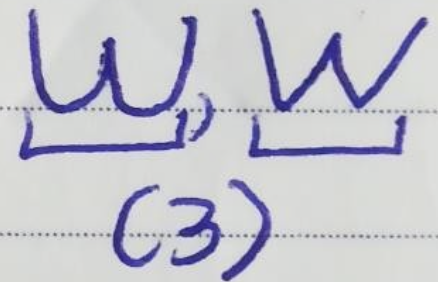 W, W
(3)